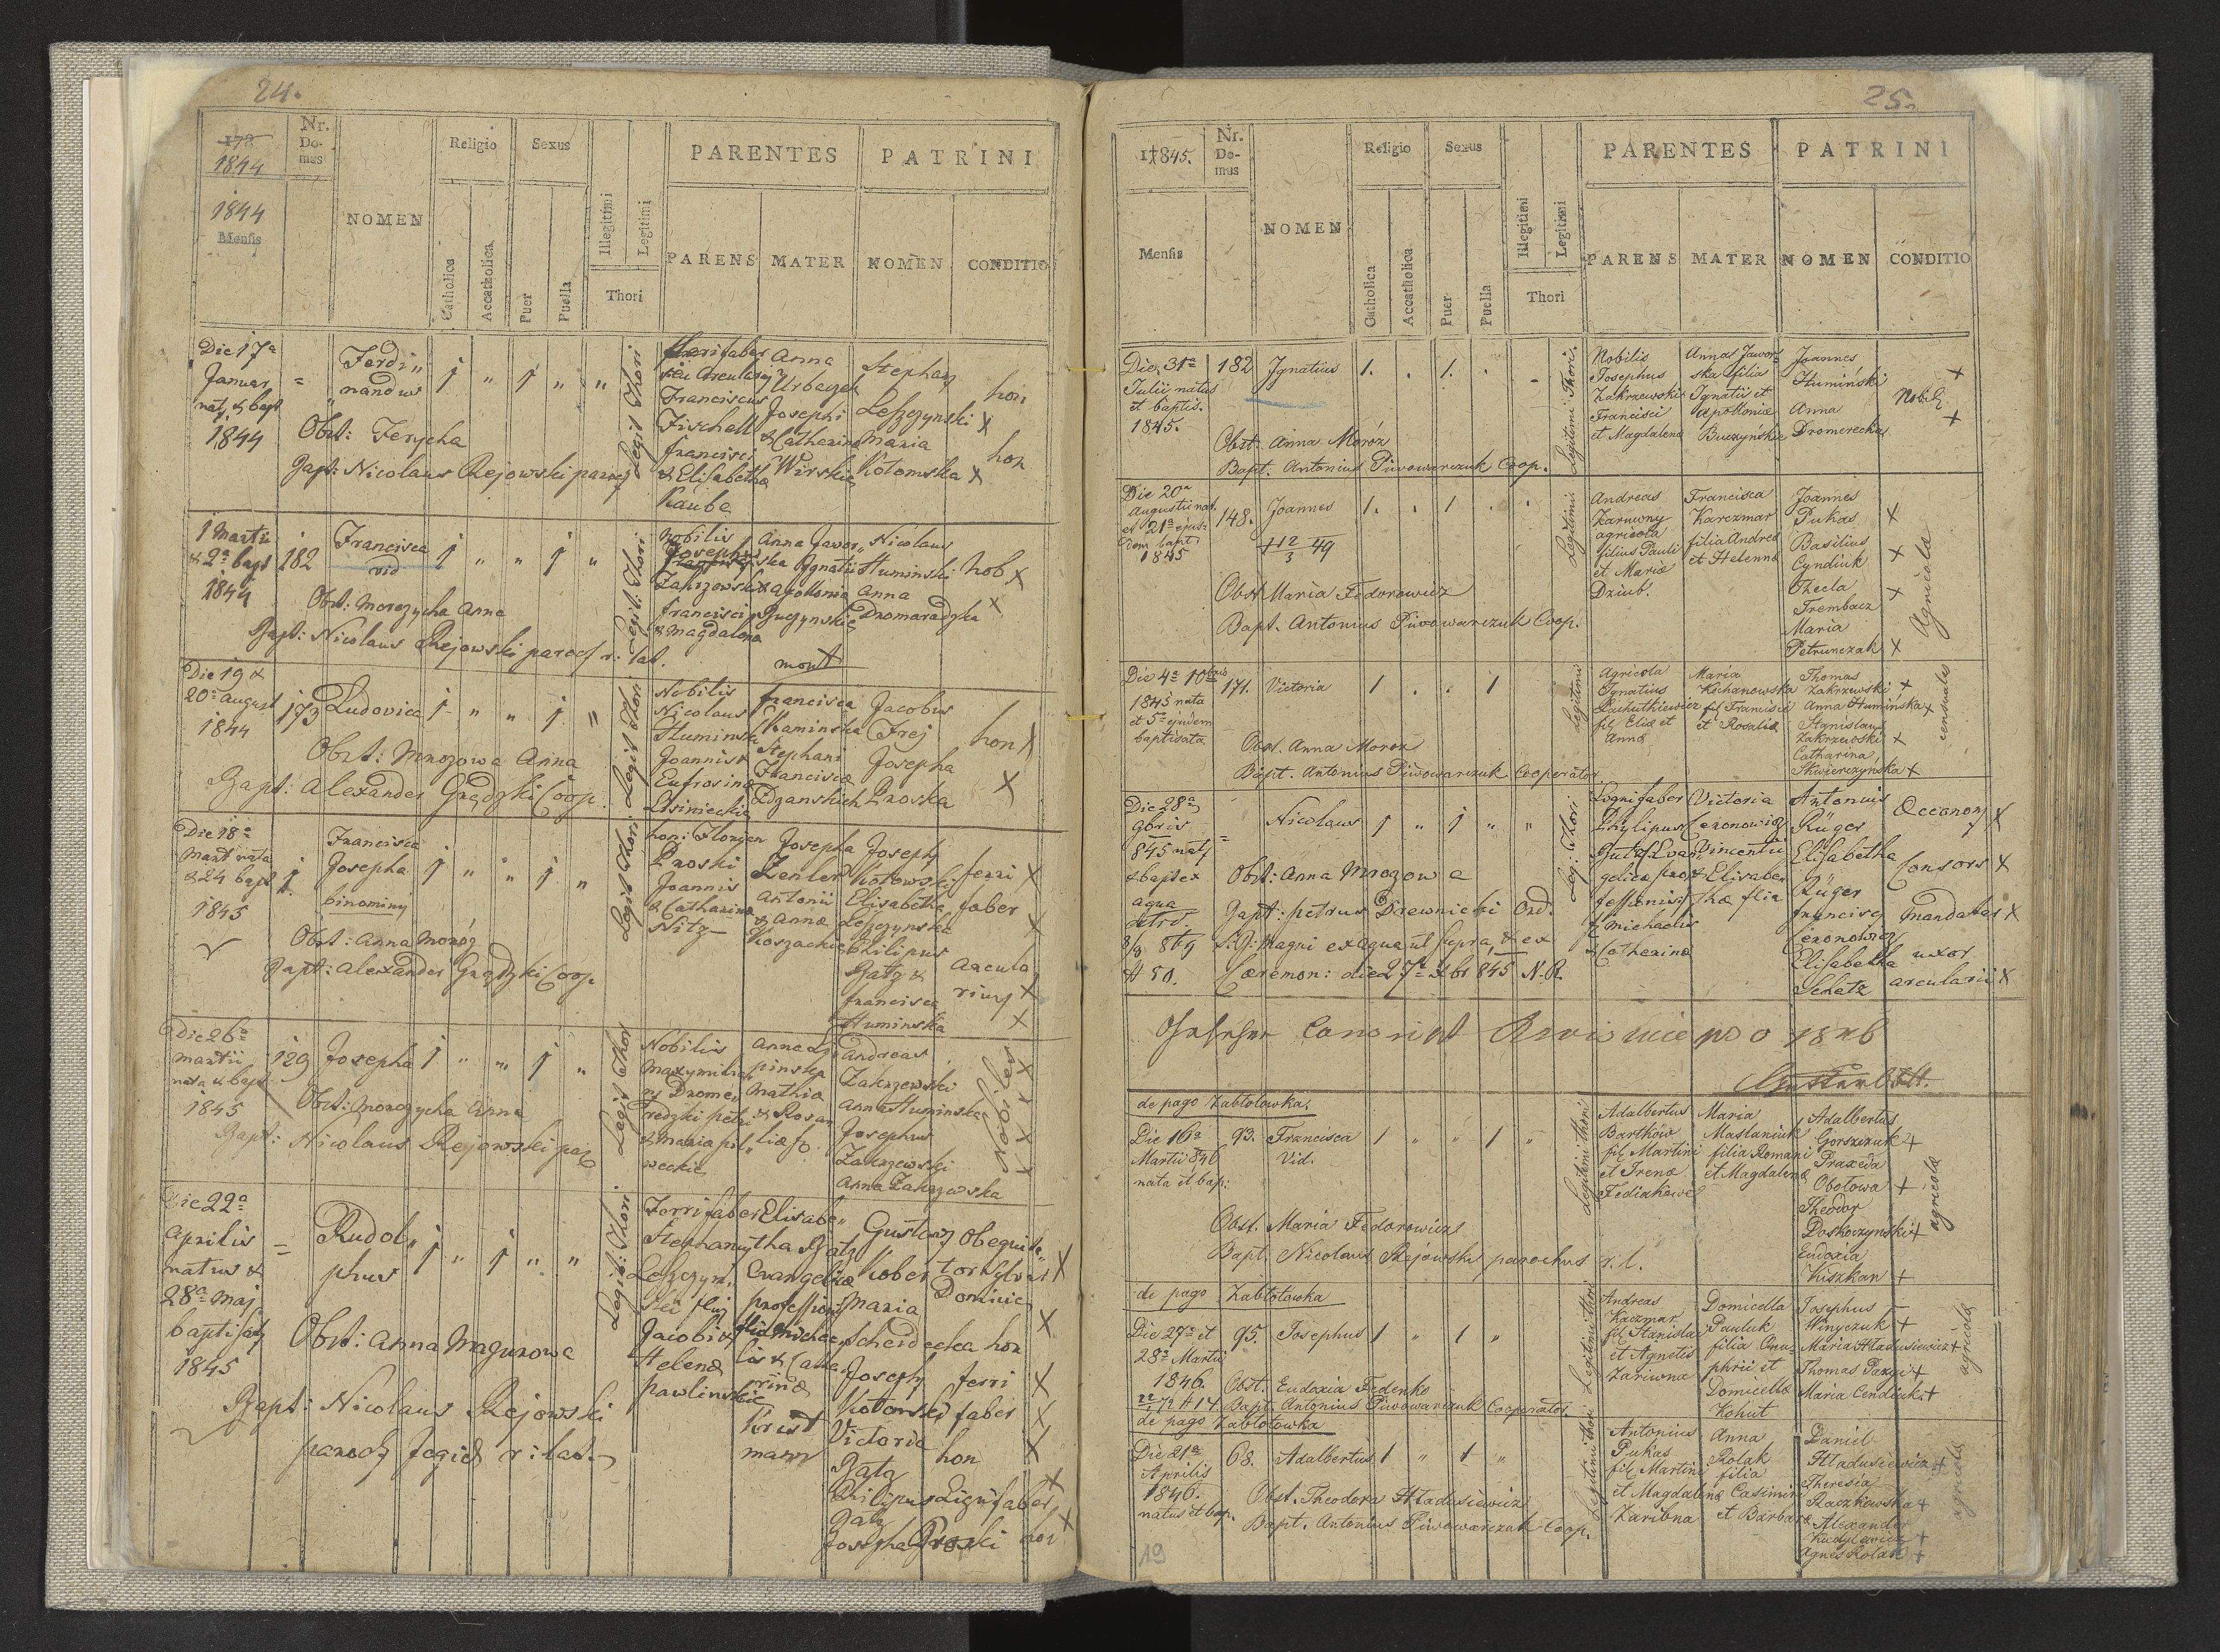 24.
178
1844
Nr.
Do-
mus
Religio
Sexus
PARENTES
PATRINI
1844
Mensis
NOMEN
Catholica
Accatholica
Puer
Puella
Illegitimi
Legitimi
Thori
PARENS
MATER
NOMEN
CONDITIO
Die 17a
Januar
nat, & bapt
1844
=
Ferdi„
nandus
1 „ 1 „ „
Legit Thori
Franciscus
Fischell
Francisci
& Elisabetha
Kaube
Anna
Urbaczek
Josephi
& Catharina
Wirskie
Stephan
Leszczynski X
Maria
Kotomska X
hon
hon
Obst: Ferycha
Bapt: Nicolaus Rejowski paroch
1 Martii
& 2a bapt
1844
182
Francisca
vid
1 „ „ 1 „
Legit: Thori
Nobilis
Josephus
Zakrzewski
Francisci
& Magdalena
Anna Jawor„
ska Ignatii
& Apollonia
Buczynskie
Nicolaus
Huminski
Anna
Dromaradzka
Nob X
X
Obst: Morozycha Anna
Bapt: Nicolaus Rejowski paroch r: lat.
Die 19 &
20a August
1844
173
Ludovica
1 „ „ 1 =
Legit Thori
Nobilis
Nicolaus
Huminski
Joannis &
Eufrosina
Lisinieckie
Francisca
Kaminska
Stephani
Francisca
Jacobus
Frej
Josepha
Proska
hon X
X
Obst: Mrozowa Anna
Bapt: Alexander Grądzki Coop.
Die 18a
Mart nata
& 24 bapt
1845
1.
Francisca
Josepha
binominy
1 „ „ 1 „
Legit Thori
hon: Floryan
Proski
Joannis
& Catharina
Nitz
Josepha
Zenler
Antonii
& Anna
Koszackie
Joseph
Kotowski
Elisabetha
Leszczynska
Philipus
Batz &
Francisca
Huminska
ferri X
faber
X
Arcula
rius X
X
Obst: Anna Moroz
Bapt: Alexander Grądzki Coop.
Die 26a
Martii
nata & bapt
1845
129
Josepha
1 „ „ 1 „
Legit Thor
Nobilis
Maxymilian
Drome„
redzki petri
& Maria pil„
weckie
Anna Li
pinska
Mathia
& Rosa
lia
Andreas
Zakrzewski
Anna Huminska
Josephus
Zakrzewski
Anna Zakrzewska
Nobiles
X X X X
Obst: Morozycha Anna
Bapt: Nicolaus Rejowski par
Die 22a
Aprilis
natus &
28a Maj
baptisatz
1845
=
Rudol„
phus
1 „ 1 „ „
Legit: Thori
Ferrifaber
Stephanus
Leszczyn„
ski filius
Jacobi &
Helena
Pawlinskie
Elisabe„
tha Batz
Evangelica
professionis
filia Michae„
lis & Catha„
rina
Krist
mann
Gustaw
Kober
Maria
Scheidecka
Joseph
Kotowski
Victoria
Batz
Philipus
Batz
Josepha Proski
Obequita„
tor Sylvar X
Dominic
X
hon
ferri X
faber X
hon X
Lignifaber X
hon X
Obst: Anna Magurowa
Bapt: Nicolaus Rejowski
paroch Jagiel r: lat.
25.
1845.
Nr.
Do-
mus
Religio
Sexus
PARENTES
PATRINI
Mensis
NOMEN
Catholica
Accatholica
Puer
Puella
Illegitimi
Legitimi
Thori
PARENS
MATER
NOMEN
CONDITIO
Die 31a
Julii natus
et baptis.
1845.
182
Ignatius
1. . 1. . .
Legitimi Thori.
Nobilis
Josephus
Zakrzewski
Francisci
et Magdalena
Anna Jawor„
ska filia
Ignatii et
Apolloniæ
Buczyńskie
Joannes
Humiński
Anna
Dromerecka
Nobili
X
X
Obst. Anna Moróz
Bapt. Antonius Piwowarczuk Coop.
Die 20a
Augusti nat.
et 21a ejus„
dem bapt.
1845
148.
Joannes
1. . 1 . .
Legitimi
† 12/3 49
Andreas
Zarwony
agricola
filius Pauli
et Mariæ
Dziub.
Francisca
Karczmar
filia Andreæ
et Helenæ
Joannes
Pukas X
Basilius
Cyndiuk X
Thecla
Trembacz X
Maria
Petrunczak X
Agricolæ
Obst. Maria Fedorowicz
Bapt. Antonius Piwowarczuk Coop.
Die 4a 10bris
1845 nata
et 5a ejusdem
baptisata
171.
Victoria
1 . . 1
Legitimi
Agricola
Ignatius
Pachuthiewicz
fil. Eliæ et
Annæ
Maria
Kochanowska
fil Francisci
et Rosaliæ
Thomas
Zakrzewski X
Anna Humińska X
Stanislaus
Zakrzewski X
Catharina
Skwierczyńska X
censuales
Obst. Anna Moroz
Bapt. Antonius Piwowarczuk Cooperator
Die 28a
9bris
845 nat
& bapt ex
aqua
=
Nicolaus
1 „ 1 „ „
Leg: Thori
Lignifaber
Phylipus
Batz Evan„
gelicæ pro„
fessionis f
Michaelis
& Catharina
Victoria
Ceronowicz
Vincentii
& Elisabe„
thæ filia
Antonius
Rüger
Elisabetha
Rüger
Francisc
Ceronowicz
Elisabetha
Schatz
Oeconom X
Consors X
Mandatar X
uxor
arcularii X
Obst: Anna Mrozowa
Bapt: Petrus Drewnicki Ord.
S: B: Magni ex aqua ut supra, & ex
Cæremon: die 27a Xbr 845 N. R.
# 50.
de pago Zabłotowka.
Die 16a
Martii 846
nata et bap:
93.
Francisca
Vid.
1 „ „ 1 „
Legitimi thori
Adalbertus
Bartków
fil Martini
et Irenæ
Fediakowe
Maria
Maslaniuk
filia Romani
et Magdalenæ
Adalbertus
Gorszczuk +
Praxeda
Obotowa +
Theodor
Doskoczynski +
Eudoxia
Kiszkan +
agricolæ
Obst. Maria Fedorowicz
Bapt. Nicolaus Rejowski parochus r. l.
de pago Zabłotowka
Die 27a et
28a Martii
1846.
95.
Josephus
1 „ 1 „
Legitimi thori
Andreas
Kaczmar
fil Stanislai
et Agnetis
Zariwna
Domicella
Pauluk
filia Onu„
phrii et
Domicellæ
Kohut
Josephus
Winyczuk +
Maria Hładusiewicz +
Thomas Pazgi +
Maria Cendiuk +
agricolæ
Obst. Eudoxia Fedenko
Bapt. Antonius Piwowarczuk Cooperator.
de pago Zabłotowka
Die 21a
Aprilis
1846.
natus et bap.
68.
Adalbertus
1 „ 1 „
Legitimi thori
Antonius
Pukas
fil Martini
et Magdalenæ
Zaribna
Anna
Rolak
filia
Casimiri
et Barbaræ
Daniel
Hładusiewicz +
Theresia
Raczkowska +
Alexander
Agnes Rolak +
agricolæ
Obst. Theodora Hładusiewicz
Bapt. Antonius Piwowarczuk Coop.
19